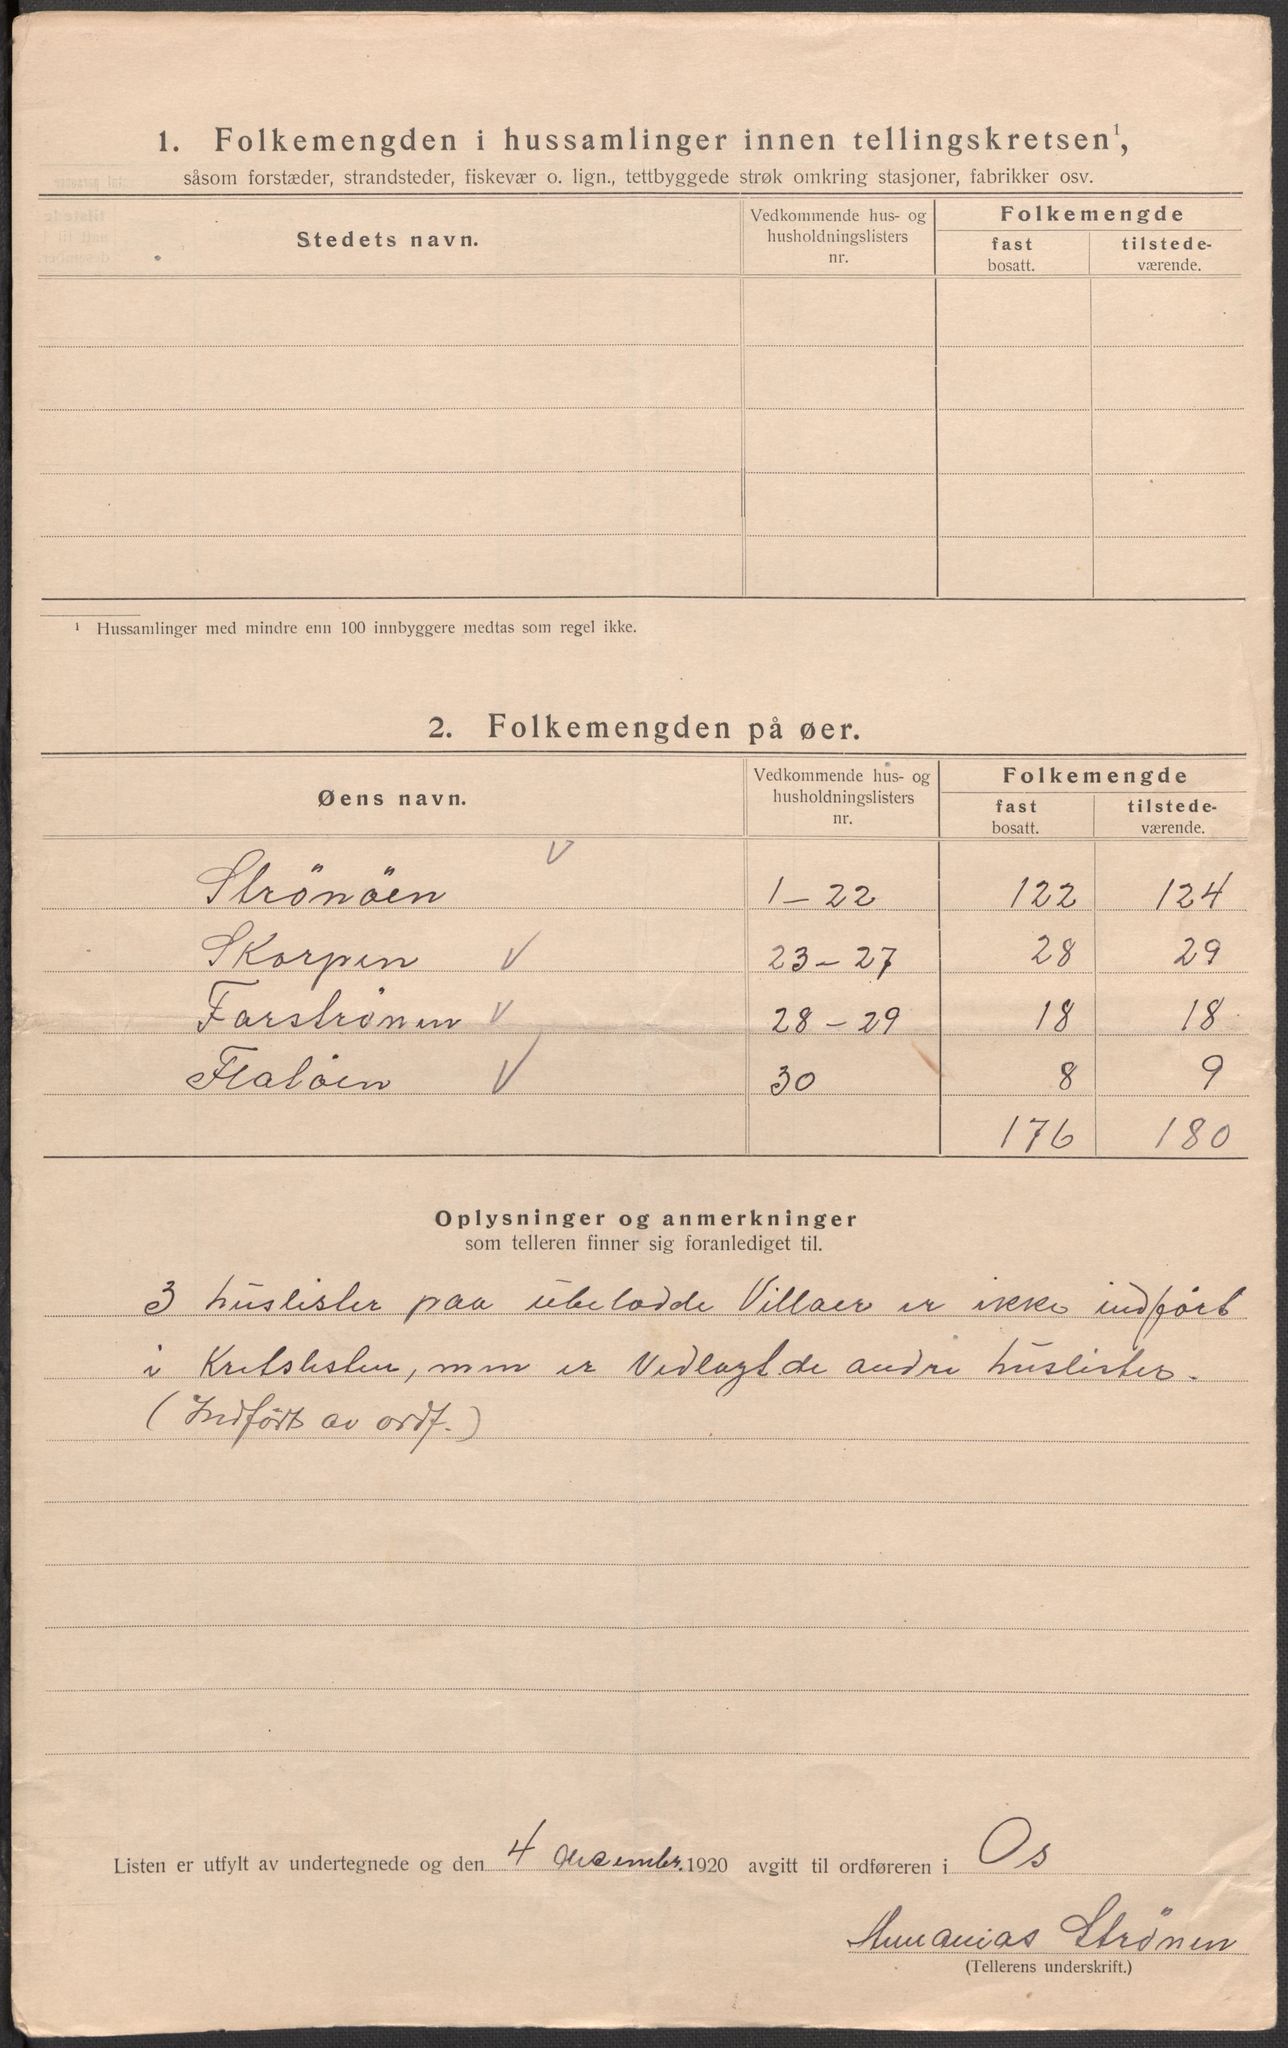 1. Folkemengden i hussamlinger innen tellingskretsen¹,
såsom forstæder, strandsteder, fiskevær o. lign., tettbyggede strøk omkring stasjoner, fabrikker osv.
Stedets navn.
Vedkommende hus- og husholdningslisters nr.
Folkemengde
fast bosatt.
tilstede-værende.
¹ Hussamlinger med mindre enn 100 innbyggere medtas som regel ikke.
2. Folkemengden på øer.
Øens navn.
Vedkommende hus- og husholdningslisters nr.
Folkemengde
fast bosatt.
tilstede-værende.
Strönöen V 1 – 22 122 124
Skorpen V 23 – 27 28 29
Farströnen V 28 – 29 18 18
Flatöen V 30 8 9
176 180
Oplysninger og anmerkninger
som telleren finner sig foranlediget til.
3 huslister paa ubebodde Villaer er ikke indfört
i Kretslisten, men er Vedlagt de andre huslister.
(Indført av ordf.)
Listen er utfylt av undertegnede og den 4 december 1920 avgitt til ordføreren i Os
Strönen
(Tellerens underskrift.)